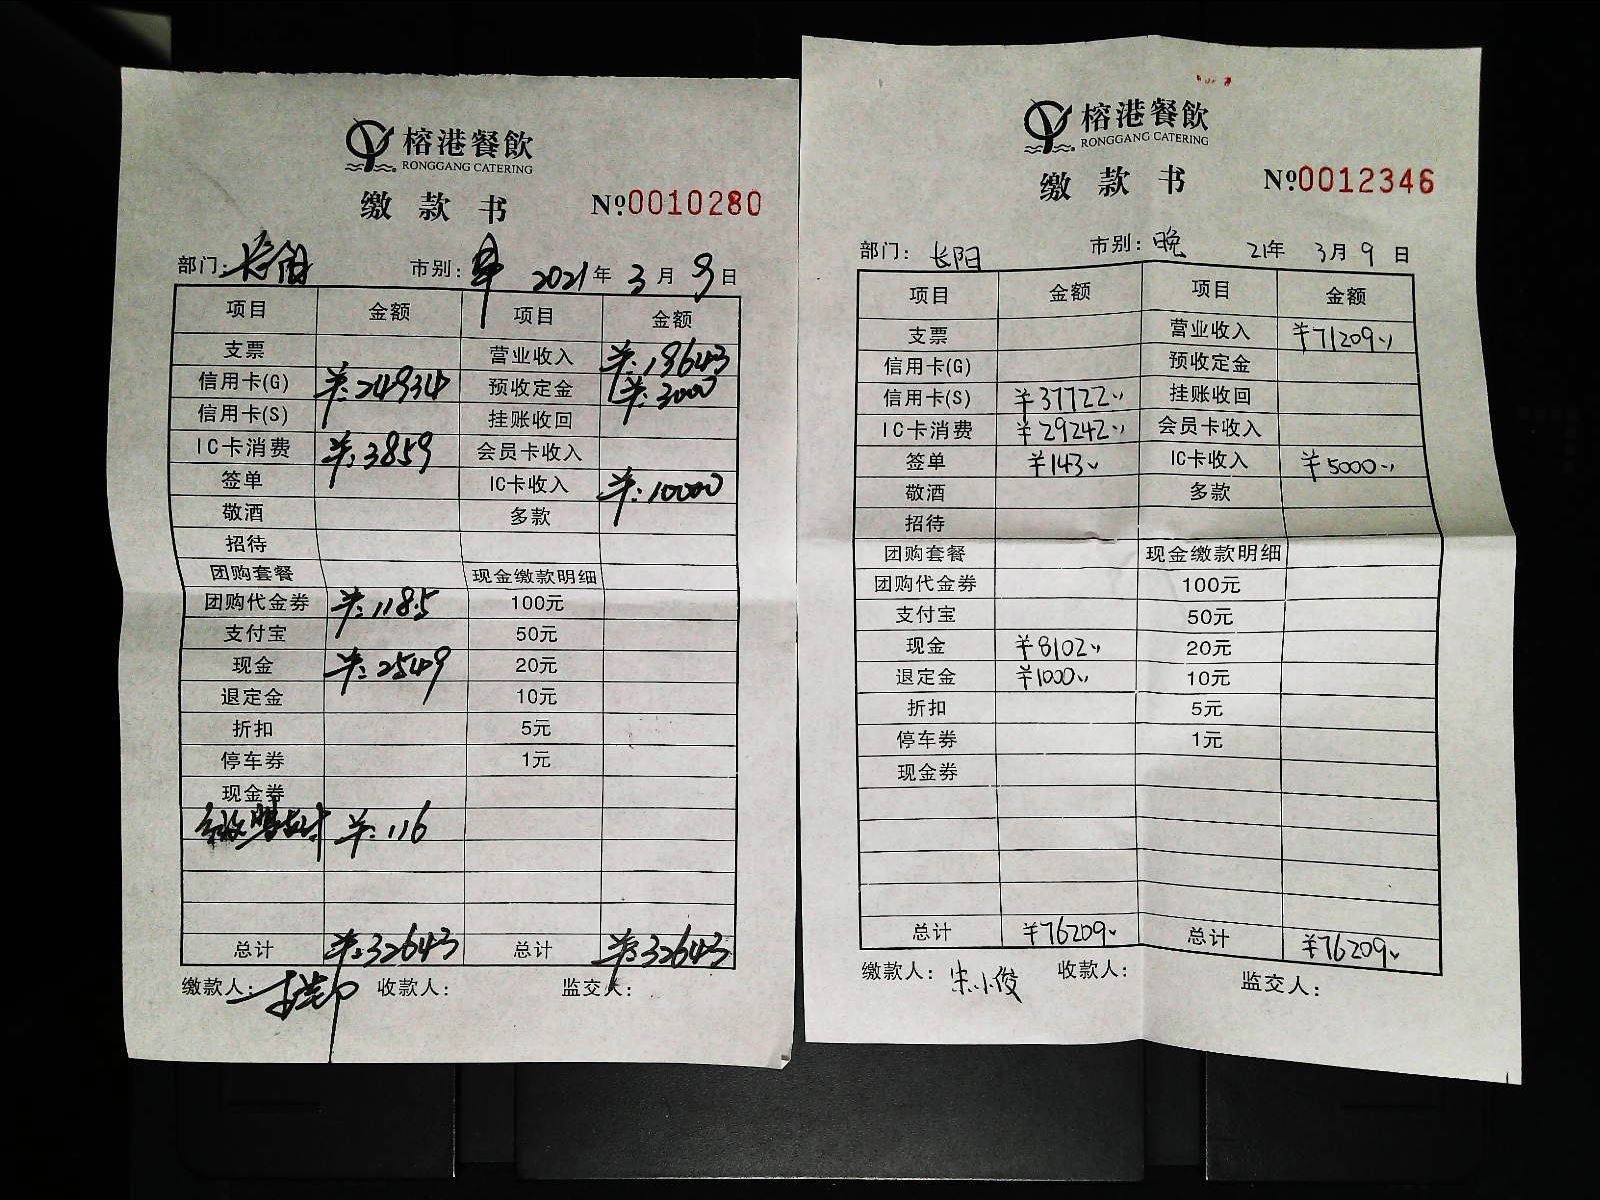 榕港餐飲
RONGGANG CATERING
缴款书 №0010280
部门：长阳 市别：早 2021年3月9日
项目 金额 项目 金额
支票 营业收入 ¥:19643
信用卡(G) ¥:24934 预收定金 ¥:3000
信用卡(S) 挂账收回
IC卡消费 ¥:3859 会员卡收入
签单 IC卡收入 ¥:10000
敬酒 多款
招待
团购套餐 现金缴款明细
团购代金券 ¥:1185 100元
支付宝 50元
现金 ¥:2549 20元
退定金 10元
折扣 5元
停车券 1元
现金券
¥:116
总计 ¥:32643 总计 ¥:32643
缴款人： 收款人： 监交人：
榕港餐飲
RONGGANG CATERING
缴款书 №0012346
部门：长阳 市别：晚 21年3月9日
项目 金额 项目 金额
支票 营业收入 ¥71209
信用卡(G) 预收定金
信用卡(S) ¥37722 挂账收回
IC卡消费 ¥29242 会员卡收入
签单 ¥143 IC卡收入 ¥5000
敬酒 多款
招待
团购套餐 现金缴款明细
团购代金券 100元
支付宝 50元
现金 ¥8102 20元
退定金 ¥1000 10元
折扣 5元
停车券 1元
现金券
总计 ¥76209 总计 ¥76209
缴款人：宋小俊 收款人： 监交人：